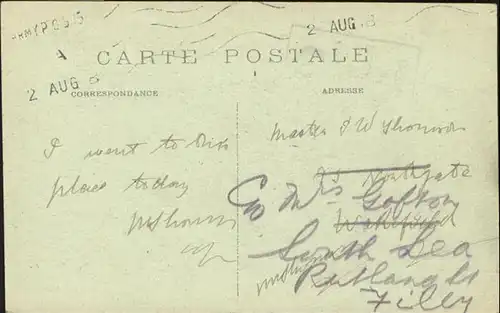 ARMY P.O.
2 AUG
A
CARTE POSTALE
2 AUG
CORRESPONDANCE
ADRESSE
I went to this
place today
Master J W Thomson
Northgate
C/o Mrs Gofton
Wakefield
South Sea
Rutland St
Filey